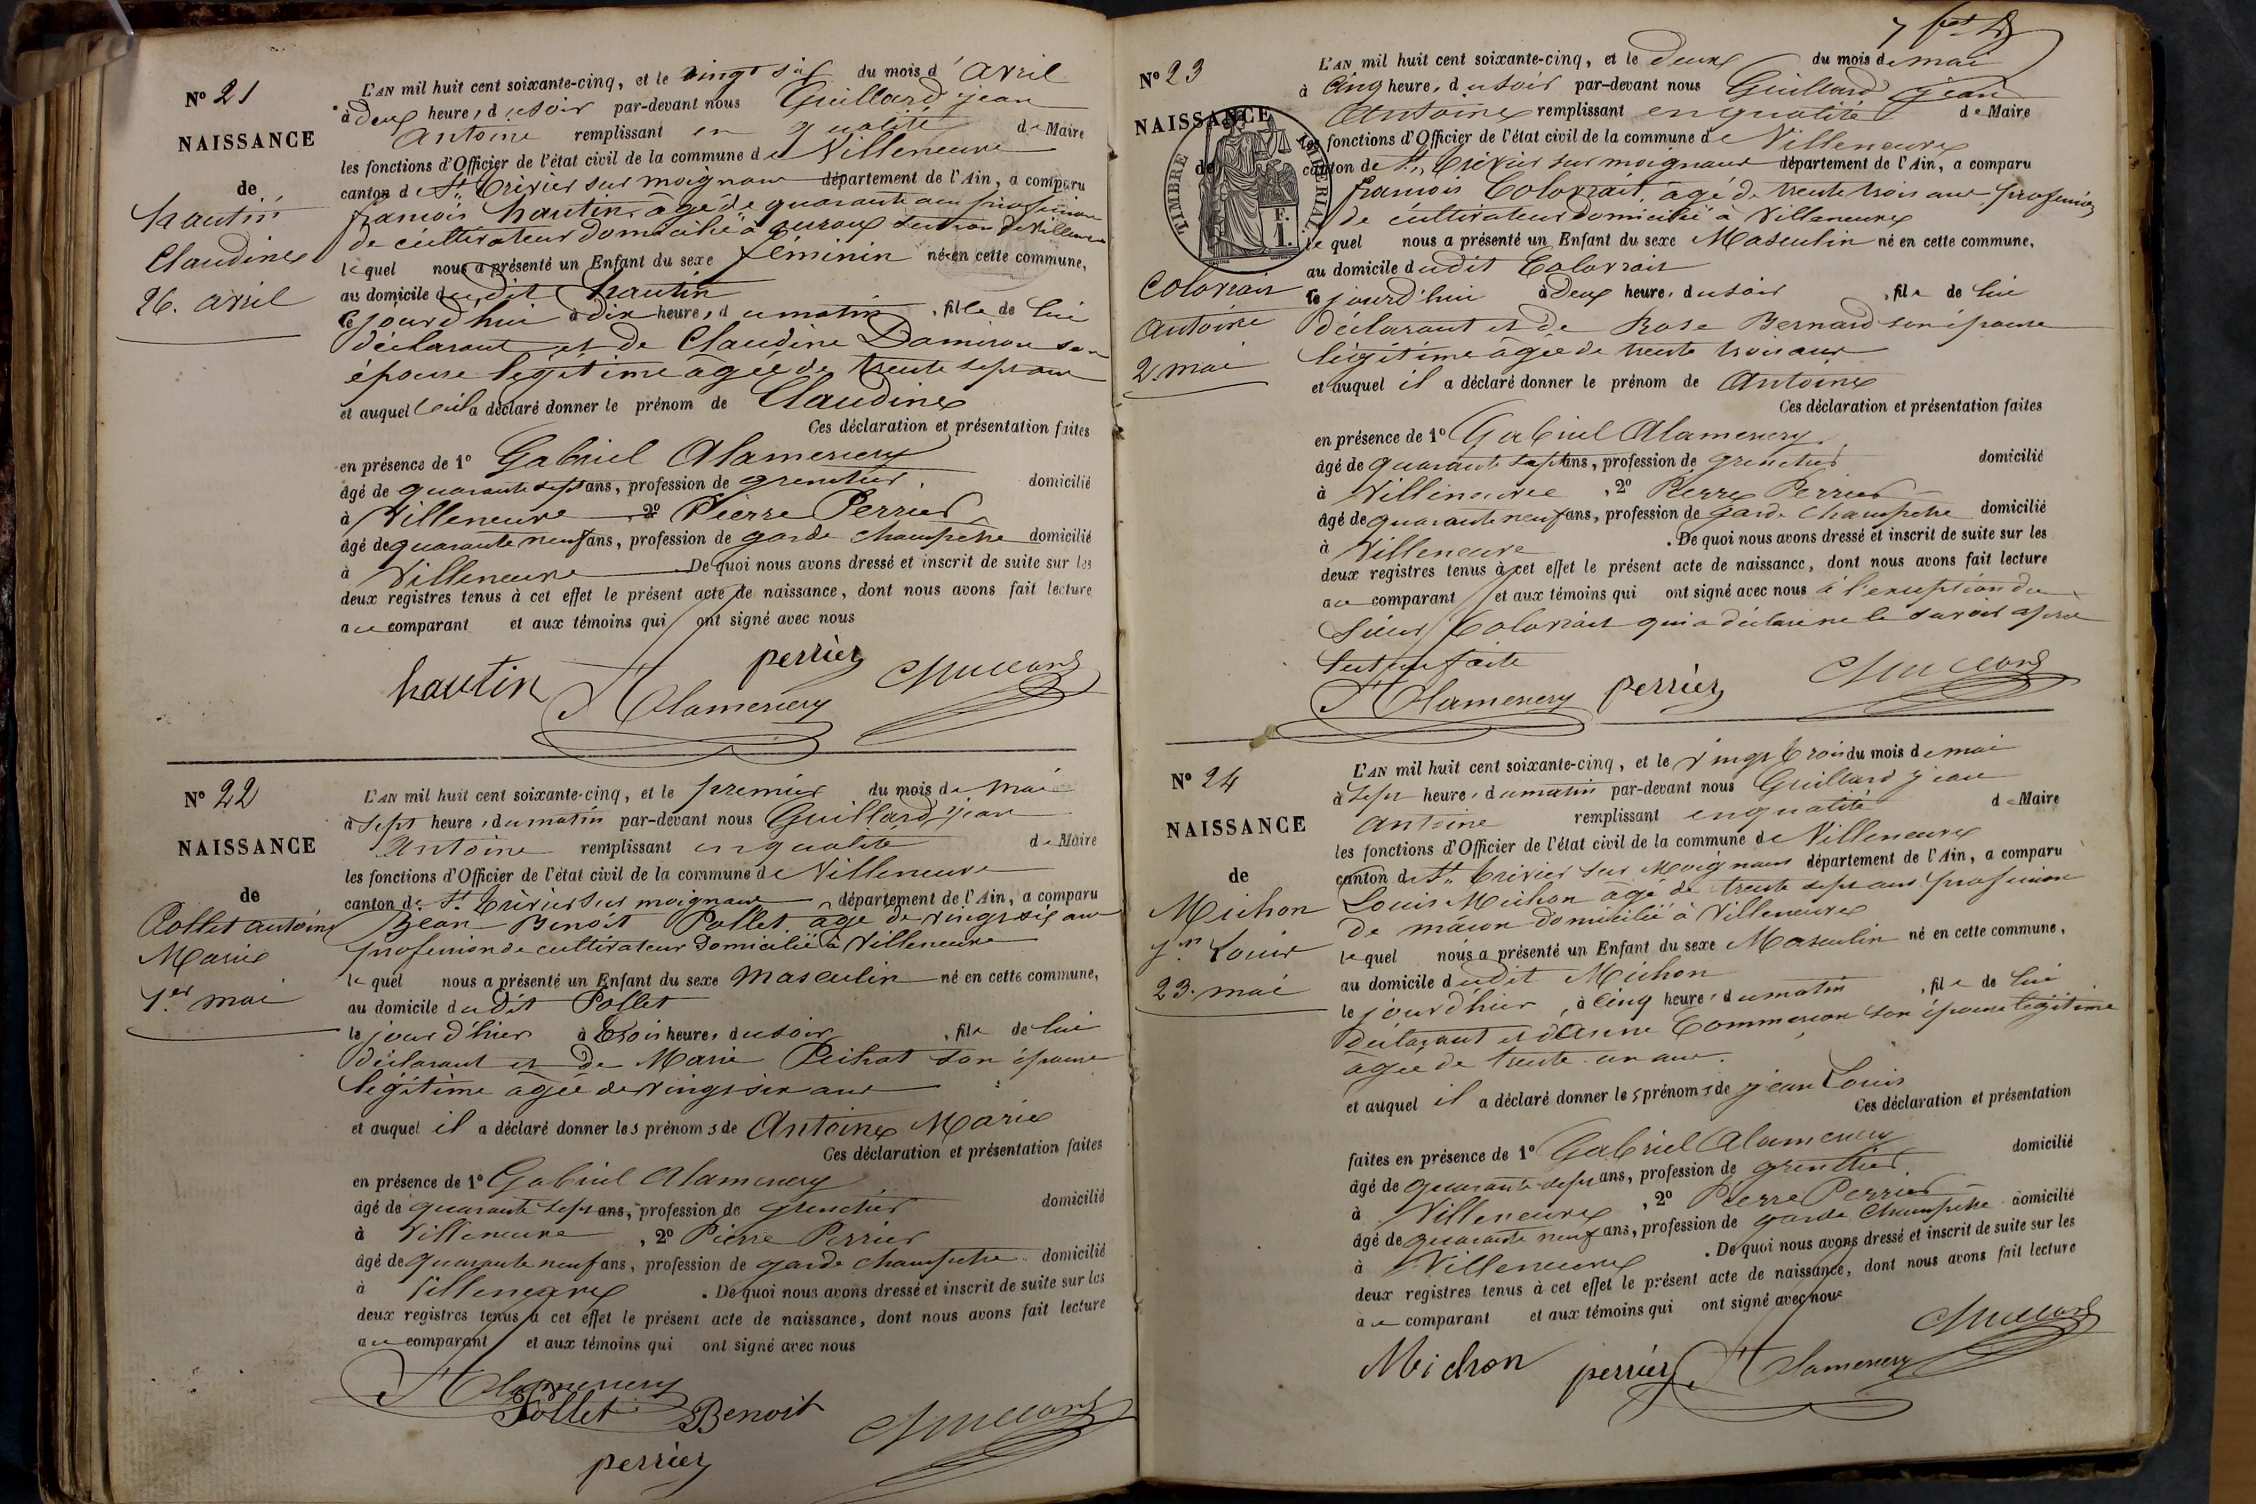 N° 21
NAISSANCE
de
hautin
Claudine
26. avril
L'AN mil huit cent soixante-cinq, et le vingt six du mois d'avril
à deux heures du soir par-devant nous Guillard jean
antoine remplissant en qualité de Maire
les fonctions d'Officier de l'état civil de la commune de Villeneuve
canton de St. Trivier sur moignans département de l'Ain, a comparu
francois hautin âgé de quarante ans profession
de cultivateur domicilié à section de Villeneuve
lequel nous a présenté un Enfant du sexe féminin né en cette commune,
au domicile dudit hautin
ce jourd'hui à dix heures du matin, fille de lui
déclarant et de Claudine Damiron son
épouse légitime âgée de trente sept ans
et auquel il a déclaré donner le prénom de Claudine
Ces déclaration et présentation faites
en présence de 1° Gabriel Alamercery
âgé de quarante sept ans, profession de grenetier, domicilié
à Villeneuve, 2° Pierre Perrier
âgé de quarante neuf ans, profession de garde champêtre domicilié
à Villeneuve. De quoi nous avons dressé et inscrit de suite sur les
deux registres tenus à cet effet le présent acte de naissance, dont nous avons fait lecture
au comparant et aux témoins qui ont signé avec nous
hautin Alamercery perrier Guillard
N° 22
NAISSANCE
de
Pollet antoine
Marie
1er mai
L'AN mil huit cent soixante-cinq, et le premier du mois de mai
à sept heures du matin par-devant nous Guillard jean
Antoine remplissant en qualité de Maire
les fonctions d'Officier de l'état civil de la commune de Villeneuve
canton de St. Trivier sur moignans département de l'Ain, a comparu
Jean Benoit Pollet âgé de vingt six ans
profession de cultivateur domicilié à Villeneuve
lequel nous a présenté un Enfant du sexe masculin né en cette commune,
au domicile dudit Pollet
le jour d'hier à trois heures du soir, fils de lui
déclarant et de Marie Pichat son épouse
légitime âgée de vingt six ans
et auquel il a déclaré donner les prénoms de Antoine Marie
Ces déclaration et présentation faites
en présence de 1° Gabriel Alamercery
âgé de quarante sept ans, profession de grenetier domicilié
à Villeneuve, 2° Pierre Perrier
âgé de quarante neuf ans, profession de garde champêtre domicilié
à Villeneuve. De quoi nous avons dressé et inscrit de suite sur les
deux registres tenus à cet effet le présent acte de naissance, dont nous avons fait lecture
au comparant et aux témoins qui ont signé avec nous
Alamercery
Pollet Benoit Guillard
perrier
N° 23
NAISSANCE
de
TIMBRE IMPERIAL
F.
1.
Colovrait
antoine
2. mai
L'AN mil huit cent soixante-cinq, et le deux du mois de mai
à cinq heures du soir par-devant nous Guillard jean
Antoine remplissant en qualité de Maire
les fonctions d'Officier de l'état civil de la commune de Villeneuve
canton de St. Trivier sur moignans département de l'Ain, a comparu
francois Colovrait âgé de trente trois ans, profession
de cultivateur domicilié à Villeneuve
lequel nous a présenté un Enfant du sexe Masculin né en cette commune,
au domicile dudit Colovrait
ce jourd'hui à deux heures du soir, fils de lui
déclarant et de Rose Bernard son épouse
légitime âgée de trente trois ans
et auquel il a déclaré donner le prénom de Antoine
Ces déclaration et présentation faites
en présence de 1° Gabriel Alamercery
âgé de quarante sept ans, profession de grenetier domicilié
à Villeneuve, 2° Pierre Perrier
âgé de quarante neuf ans, profession de garde champêtre domicilié
à Villeneuve. De quoi nous avons dressé et inscrit de suite sur les
deux registres tenus à cet effet le présent acte de naissance, dont nous avons fait lecture
au comparant et aux témoins qui ont signé avec nous à l'exception du
sieur Colovrait qui a déclaré ne le savoir après
lecture faite
Alamercery perrier Guillard
N° 24
NAISSANCE
de
Michon
jn. Louis
23. mai
L'AN mil huit cent soixante-cinq, et le vingt trois du mois de mai
à sept heures du matin par-devant nous Guillard jean
antoine remplissant en qualité de Maire
les fonctions d'Officier de l'état civil de la commune de Villeneuve
canton de St. Trivier sur Moignans département de l'Ain, a comparu
Louis Michon âgé de trente sept ans profession
de maçon domicilié à Villeneuve
lequel nous a présenté un Enfant du sexe Masculin né en cette commune,
au domicile dudit Michon
le jour d'hier, à cinq heures du matin, fils de lui
déclarant et d'Anne Commerson son épouse légitime
âgée de trente un ans.
et auquel il a déclaré donner les prénoms de jean Louis
Ces déclaration et présentation
faites en présence de 1° Gabriel Alamercery
âgé de quarante sept ans, profession de grenetier domicilié
à Villeneuve, 2° Pierre Perrier
âgé de quarante neuf ans, profession de garde champêtre domicilié
à Villeneuve. De quoi nous avons dressé et inscrit de suite sur les
deux registres tenus à cet effet le présent acte de naissance, dont nous avons fait lecture
au comparant et aux témoins qui ont signé avec nous
Michon perrier Alamercery Guillard